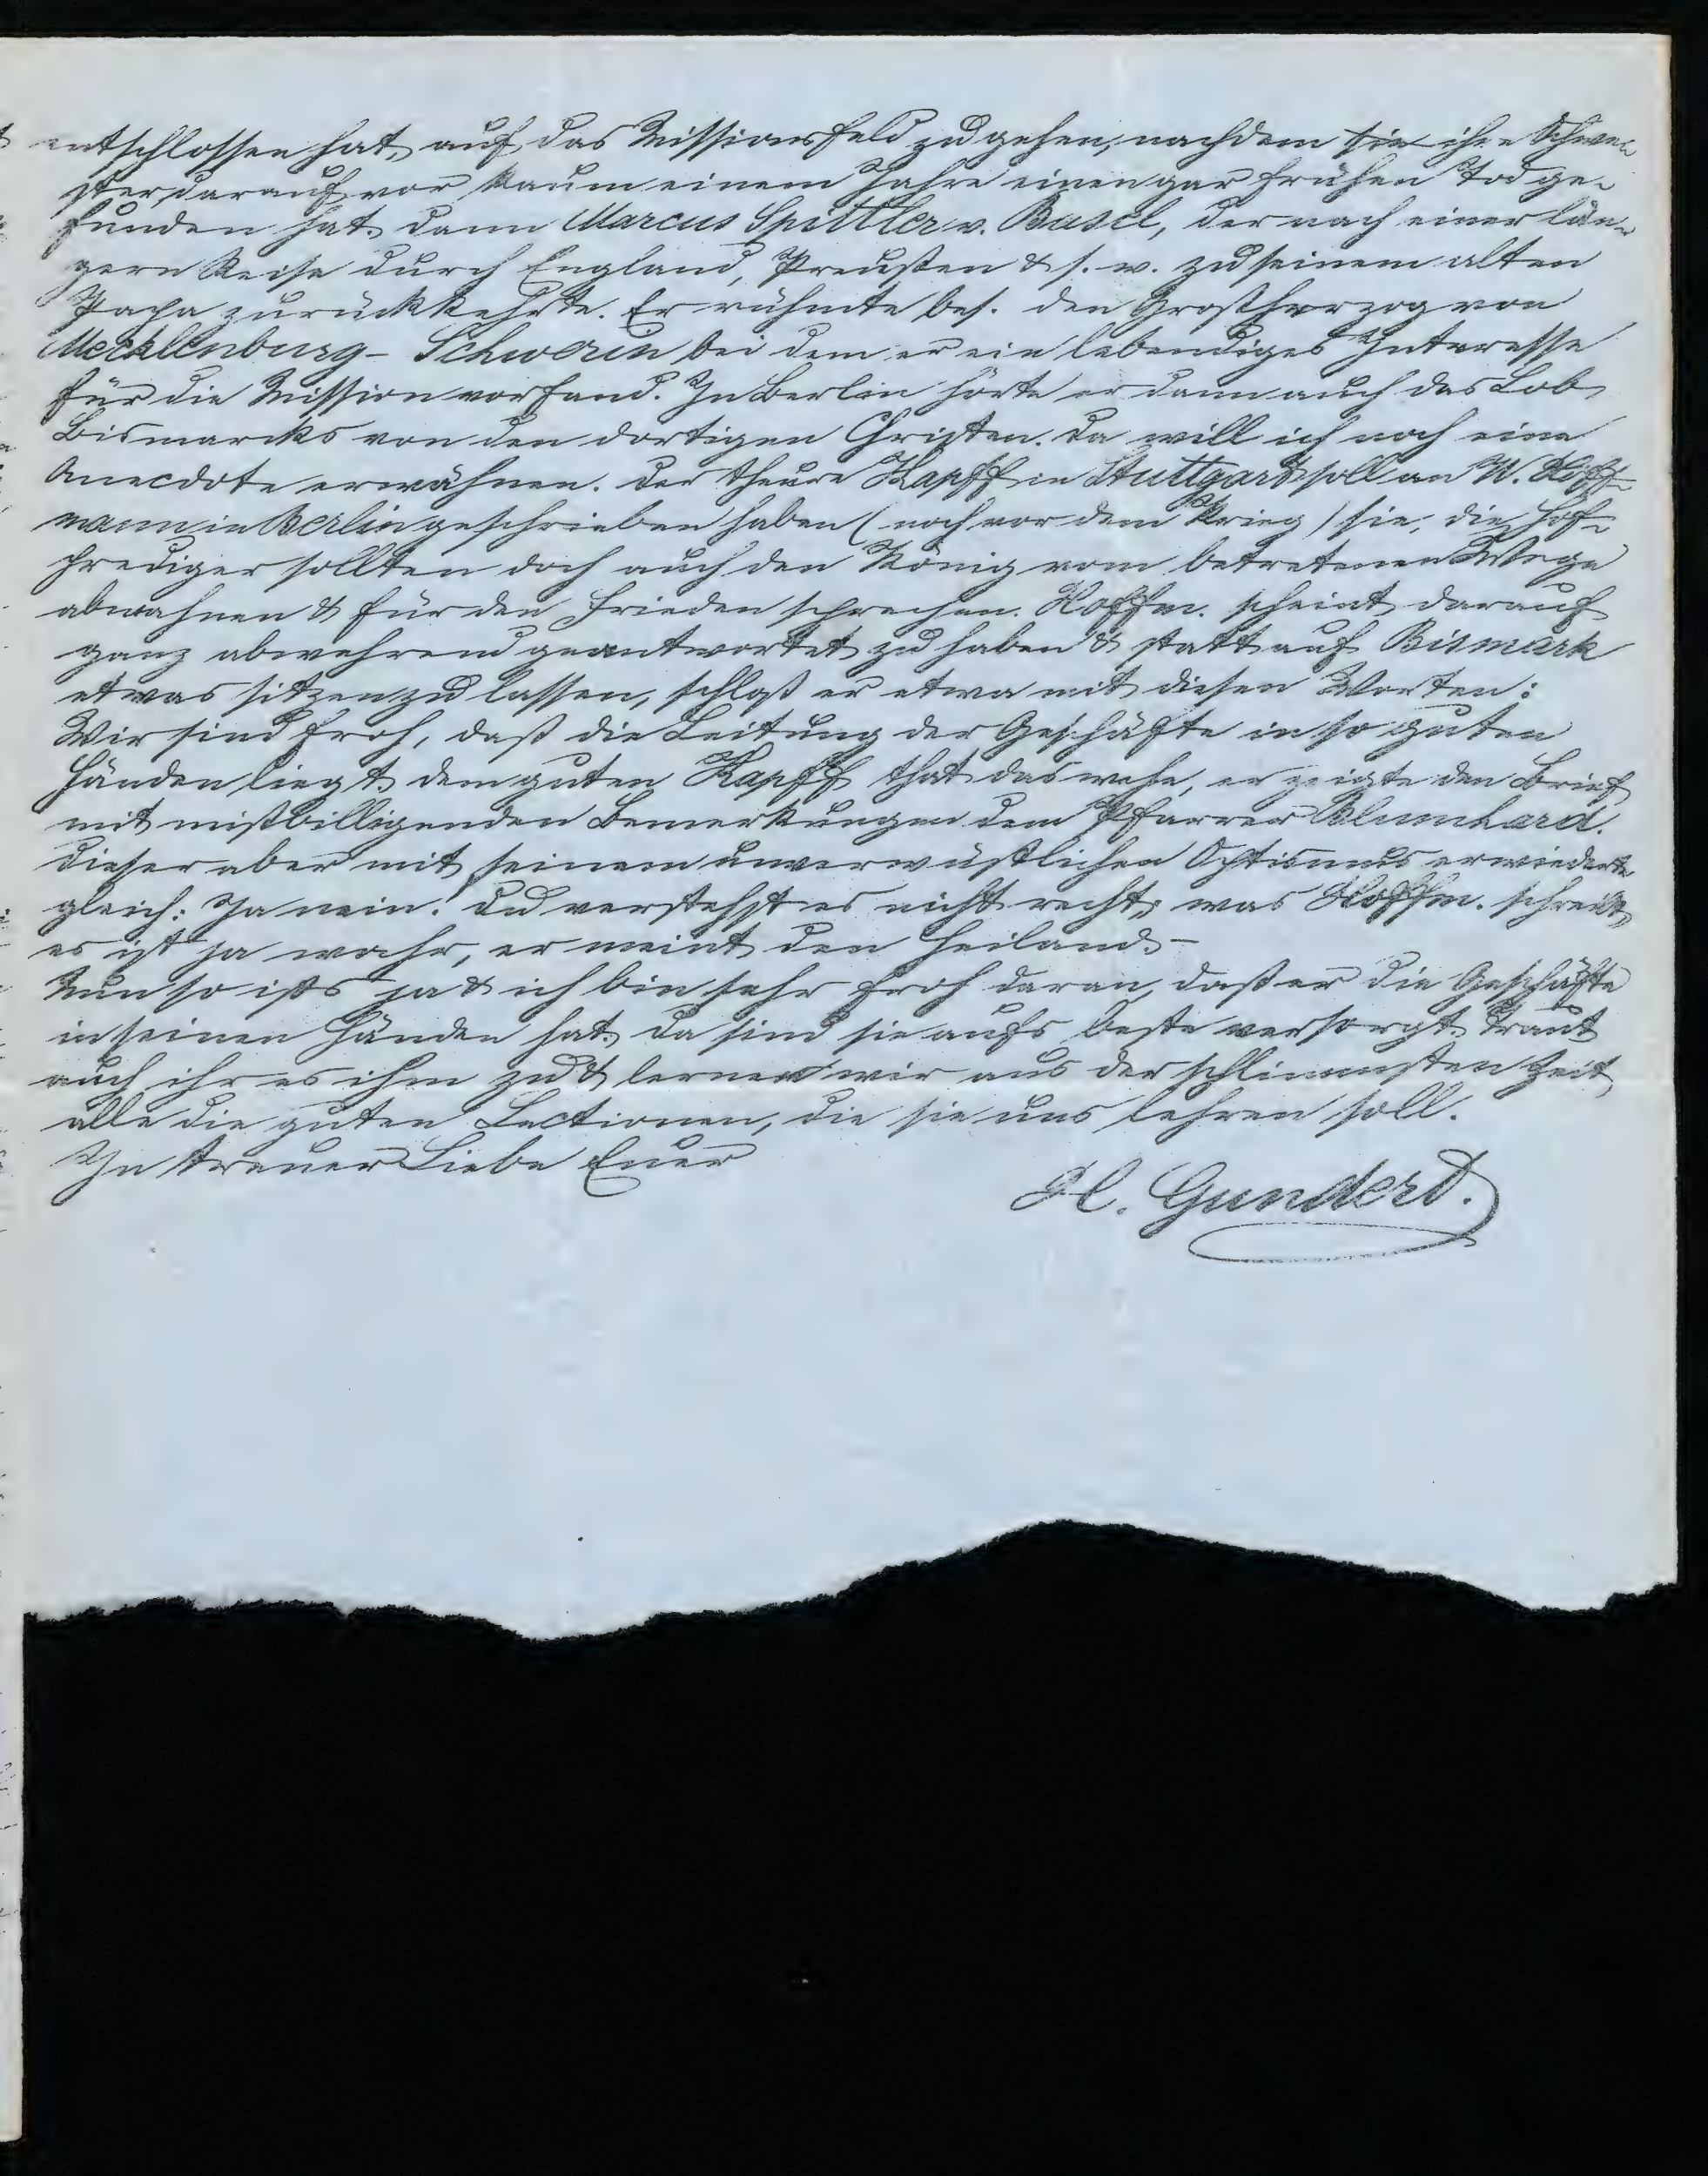 entschlossen hat, auf das Missionsfeld zu gehen, nachdem ihre Schwe-
ster darauf vor kaum einem Jahre einen gar frühen Tod ge-
funden hat. dann Marcus Spittler v. Basel, der nach einer län-
gern Reise durch England, Preußen & s. w. zu seinem alten
Papa zurückkehrte. Er rühmte bes. den Großherzog von
Mecklenburg-Schwerin bei dem er ein lebendiges Interesse
für die Mission vorfand. In Berlin hörte er dann auch das Lob
Bismarcks von den dortigen Christen. Da will ich noch eine
Anecdote erwähnen. Der theure Kapff in Stuttgart soll an W. Hoff-
mann in Berlin geschrieben haben (noch vor dem Krieg) sie, die Hof-
prediger sollten doch auch den König vom betretenen Wege
abmahnen & für den Frieden sprechen. Hoffm. scheint darauf
ganz abwehrend geantwortet zu haben & statt auf Bismark
etwas sitzen zu lassen, schloß er etwa mit diesen Worten:
Wir sind froh, daß die Leitung der Geschäfte in so guten
Händen liegt. dem guten Kapff that das wehe, er zeigte den Brief
mit mißbilligenden Bemerkungen dem Pfarrer Blumhard.
Dieser aber mit seinem unverwüstlichen Optismus erwiederte
gleich: Ja nein! Du verstehst es nicht recht, was Hoffm. schreibt,
es ist ja wahr, er meint den Heiland. -
Nun so ists ja & ich bin sehr froh daran, daß er die Geschäfte
in seinen Händen hat. Da sind sie aufs beste versorgt. Traut
auch ihr es ihm zu & lernen wir aus der schlimmsten Zeit
alle die guten Lectionen, die sie uns lehren soll.
In treuer Liebe Euer
H. Gundert.